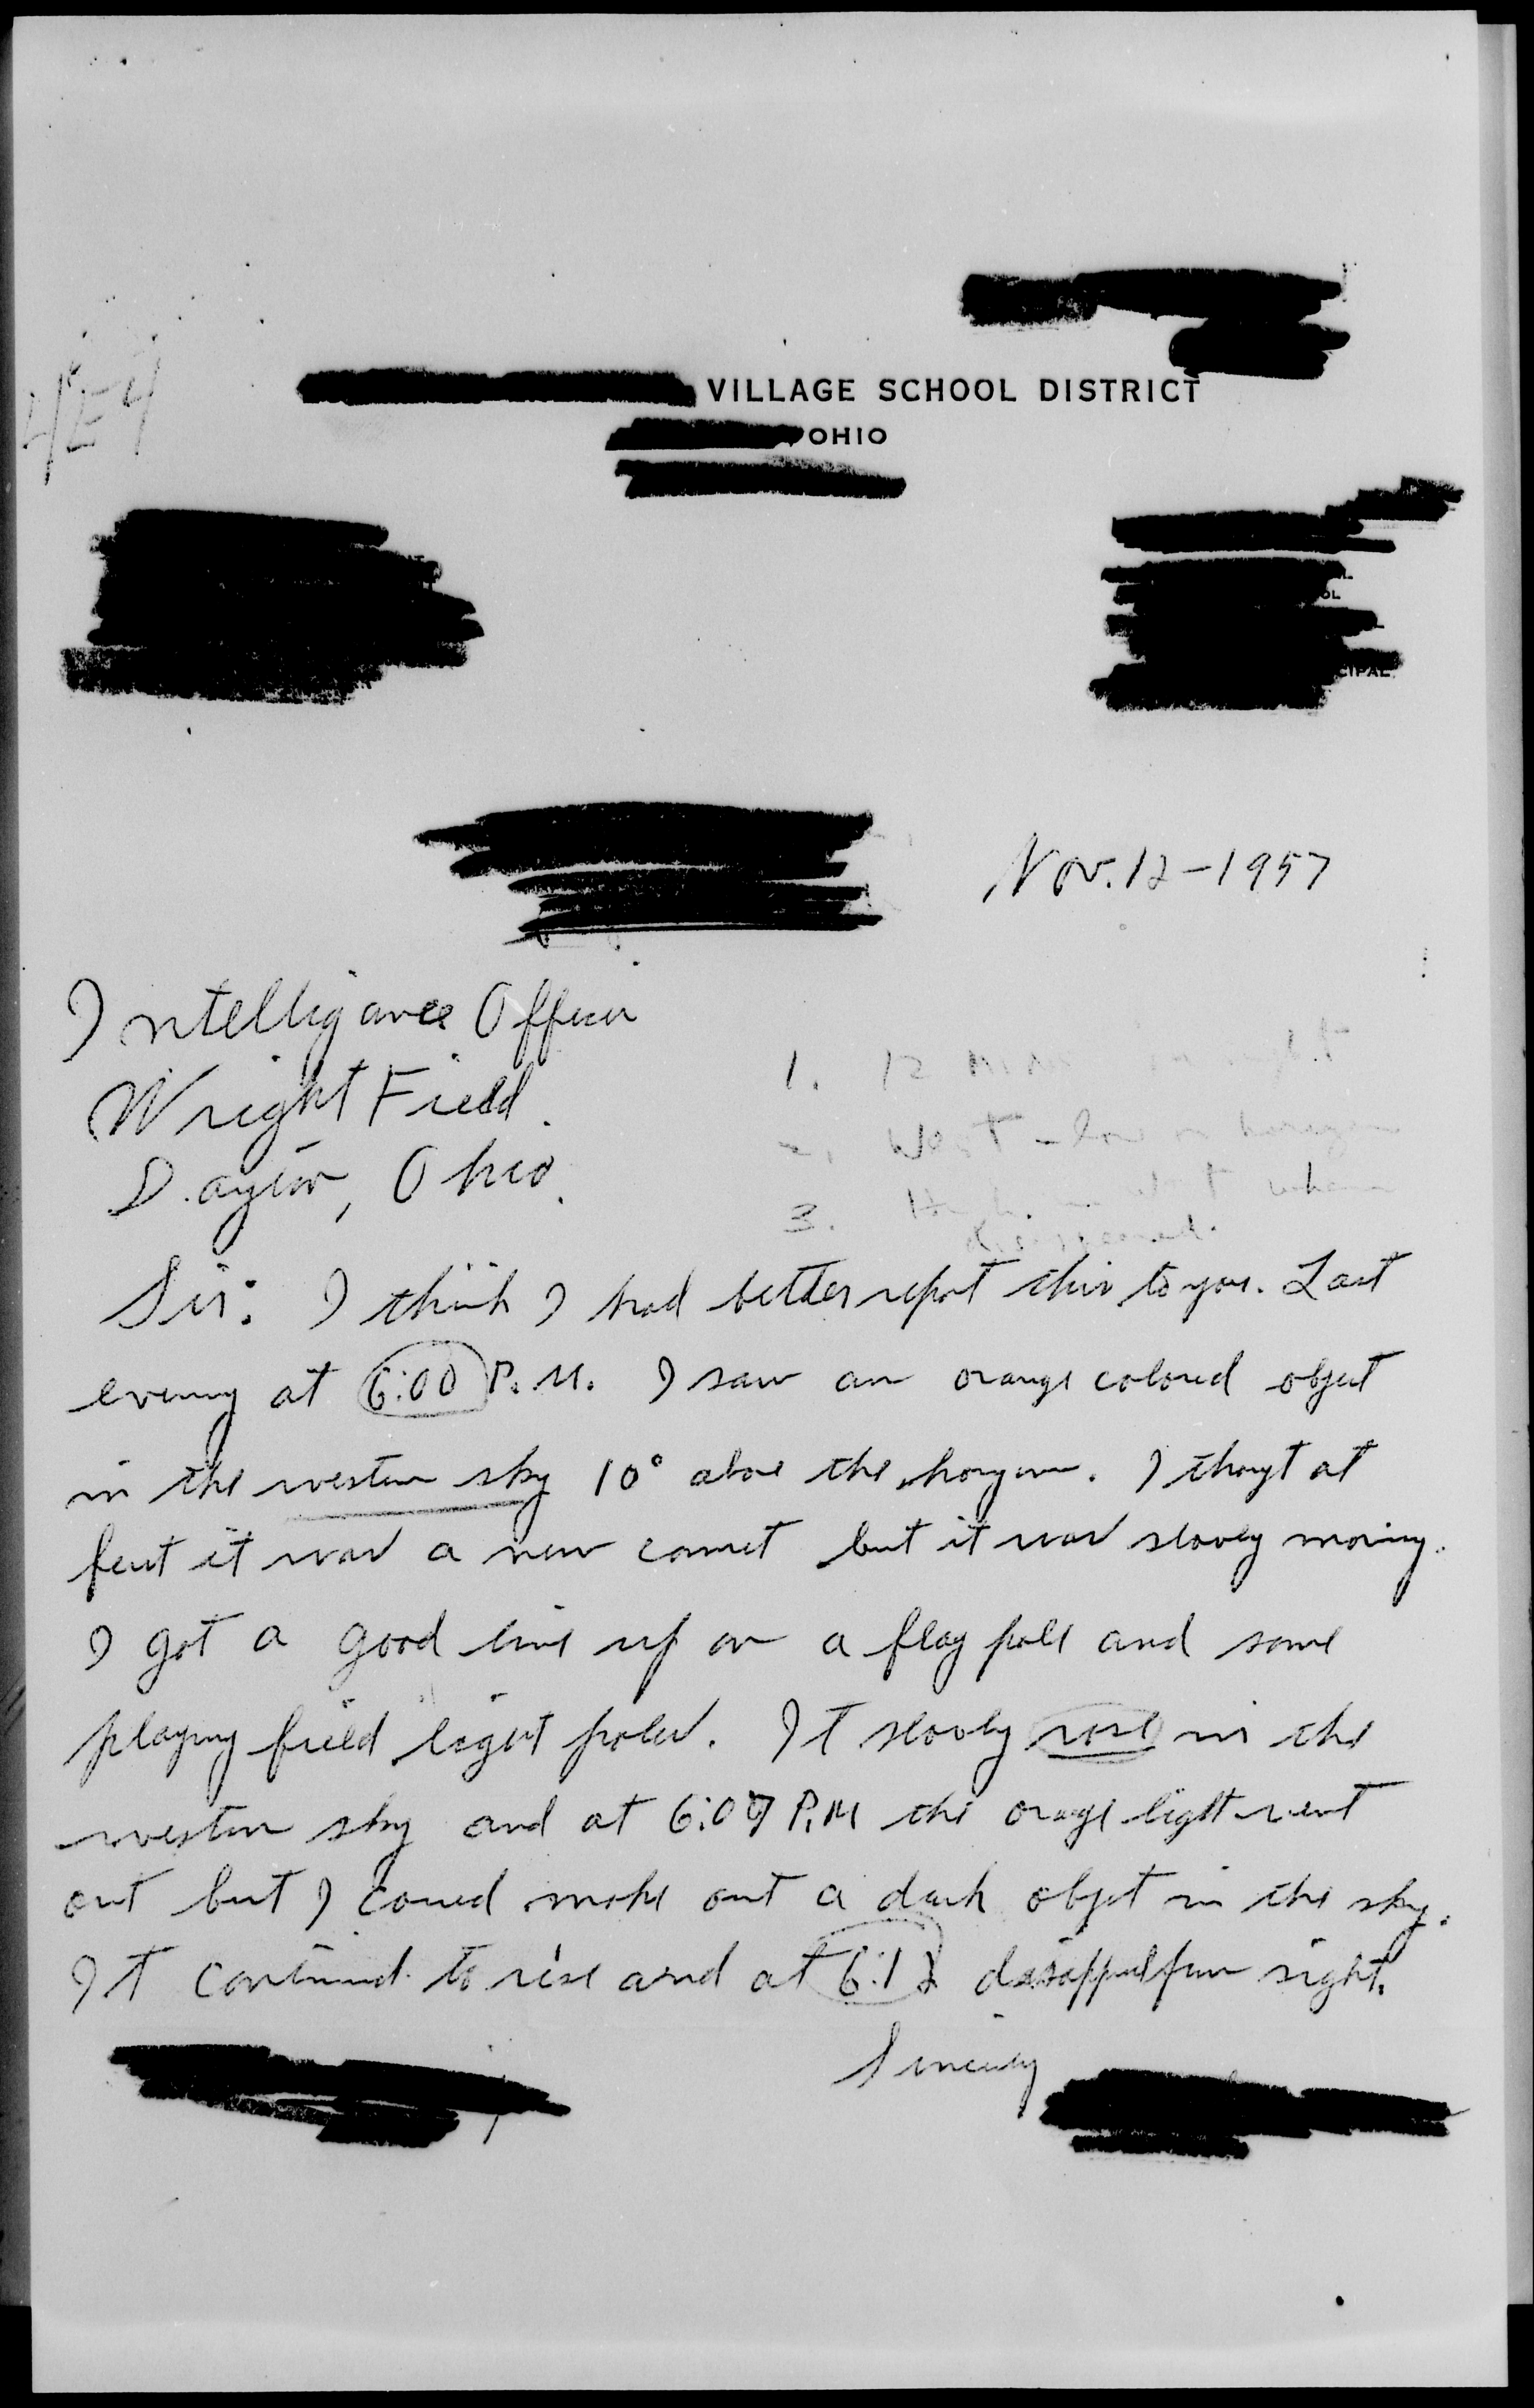 VILLAGE SCHOOL DISTRICT
OHIO
OL
CIPAL
Nov. 12-1957
Intelligance Officer
Wright Field
Dayton, Ohio
1. 12
2. West - low on
3. when
Sir: I think I had better report this to you. Last
evening at 6:00 P.M. I saw an orange colored object
in the western sky 10° above the horyon. I thought at
first it was a new comet but it was slowly moving.
I got a good line up on a flag pole and some
playing field light poles. It slowly rose in the
western sky and at 6:09 P.M the orange light went
out but I could make out a dark object in the sky.
It continued to rise and at 6:12 from sight.
Sincerely